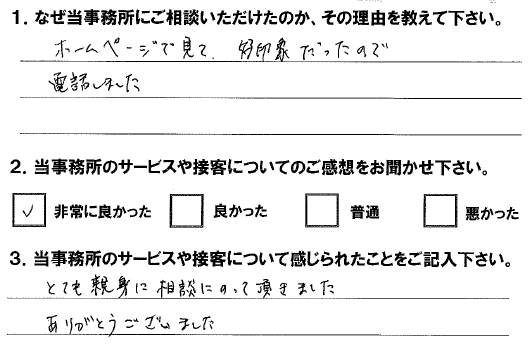 1. なぜ当事務所にご相談いただけたのか、その理由を教えて下さい。
ホームページで見て、好印象だったので
電話しました
2. 当事務所のサービスや接客についてのご感想をお聞かせ下さい。
✓ 非常に良かった 良かった 普通 悪かった
3. 当事務所のサービスや接客について感じられたことをご記入下さい。
とても親身に相談にのって頂きました
ありがとうございました